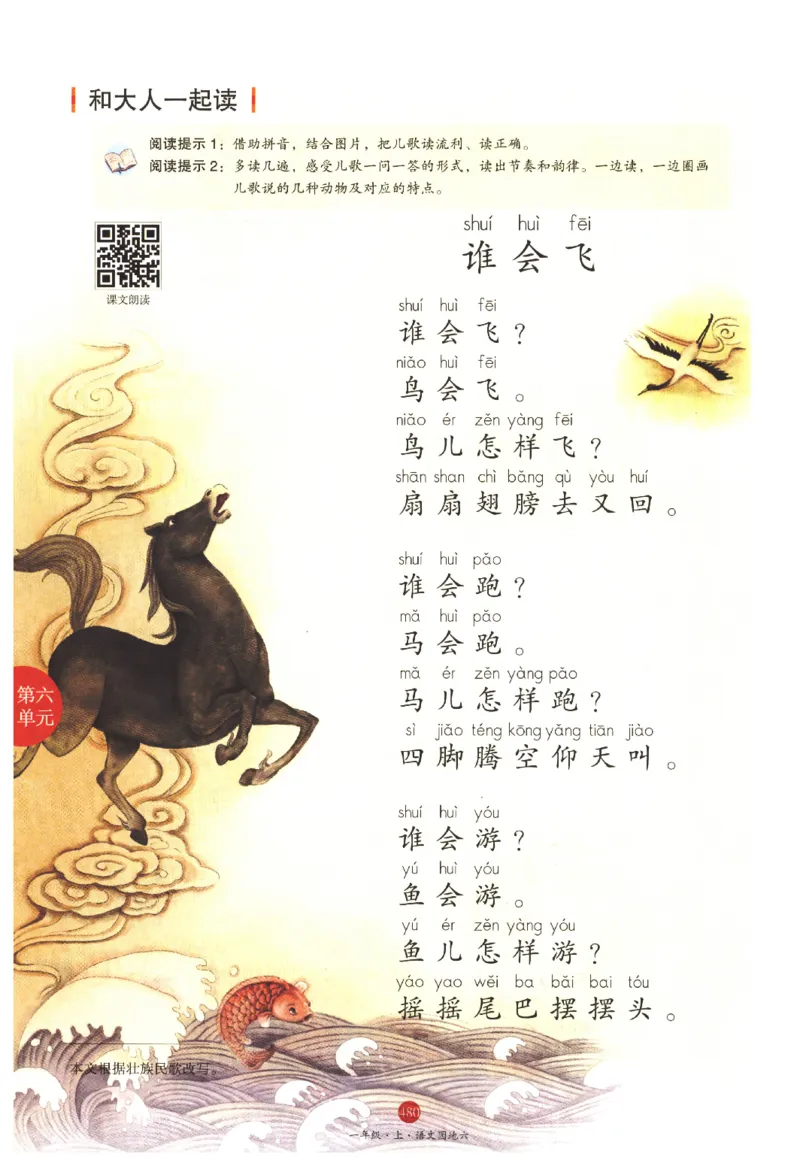 和大人一起读
阅读提示1：借助拼音，结合图片，把儿歌读流利、读正确。
阅读提示2：多读几遍，感受儿歌一问一答的形式，读出节奏和韵律。一边读，一边圈画
儿歌说的几种动物及对应的特点。
课文朗读
shuí huì fēi
谁会飞
shuí huì fēi
谁会飞？
niǎo huì fēi
鸟会飞。
niǎo ér zěn yàng fēi
鸟儿怎样飞？
shān shan chì bǎng qù yòu huí
扇扇翅膀去又回。
shuí huì pǎo
谁会跑？
mǎ huì pǎo
马会跑。
mǎ ér zěn yàng pǎo
马儿怎样跑？
sì jiǎo téng kōng yǎng tiān jiào
四脚腾空仰天叫。
shuí huì yóu
谁会游？
yú huì yóu
鱼会游。
yú ér zěn yàng yóu
鱼儿怎样游？
yáo yao wěi ba bǎi bai tóu
摇摇尾巴摆摆头。
第六
单元
本文根据壮族民歌改写。
480
一年级·上·语文园地六